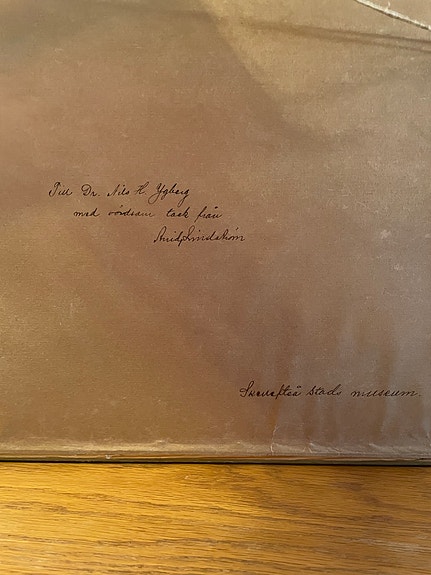 Till Dr. Nils H. Ygberg
med vördsam tack från
Arvid Lindström
Skellefteå Stads museum